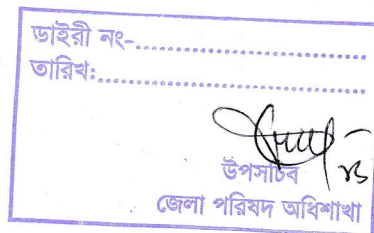 ডাইরী নং-....................................
তারিখ:..........................................
উপসচিব
জেলা পরিষদ অধিশাখা